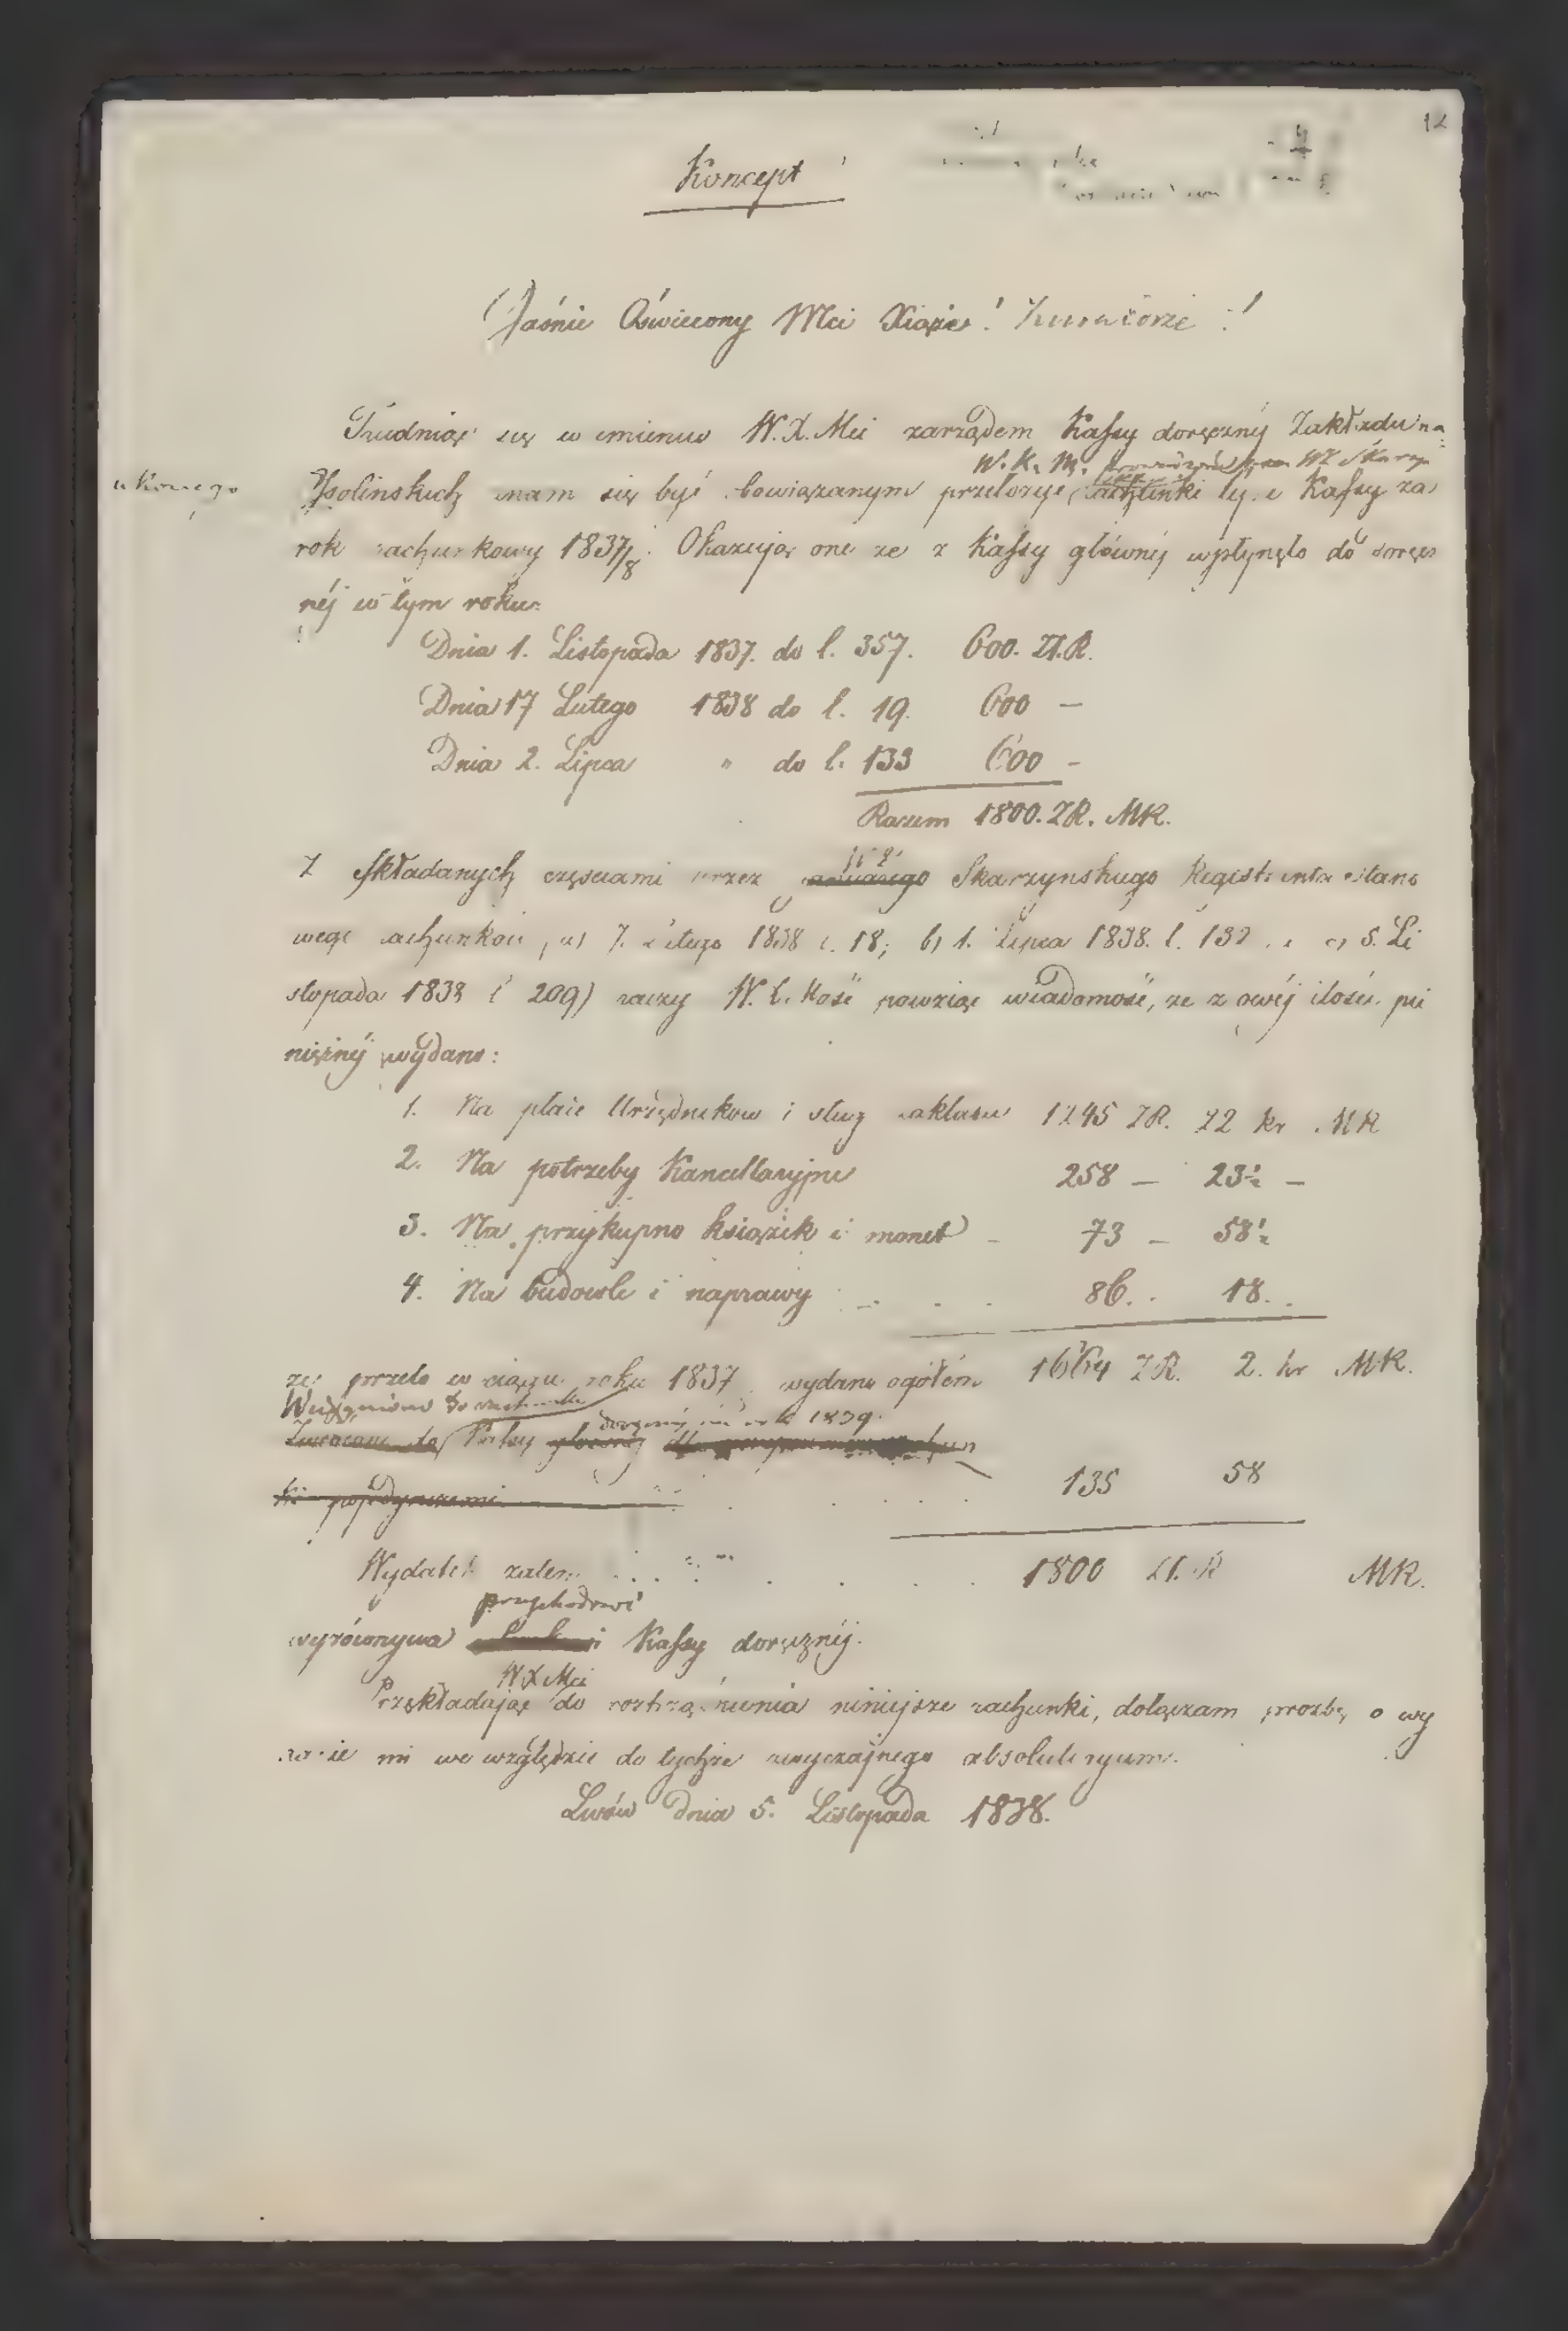 12
Koncept
Jaśnie Oświecony Mci Xiąże! Kuratorze!
Trudniąc się w imieniu W.X.Mci zarządem Kassy doręczný Zakładu na
ukowego
W. K. M. przez WZ Skarzy
Ossolinskich mam się być obowiązanym przełożyć rachunki tyże Kassy za
rok rachunkowy 1837/8. Okazują one ze z Kassy głównéj wpłynęło do doręcz
néj w tym roku:
Dnia 1. Listopada 1837. do l. 357. 600. Zł.R.
Dnia 17 Lutego 1838 do l. 19. 600 —
Dnia 2. Lipca " do l. 133 600 —
Razem 1800. ZR. MK.
Z składanych częściami przez Skarzynskiego Registranta stano
wego rachunków, a) 7. Lutego 1838 l. 18; b) 1. Lipca 1838. l. 132 i c) 5. Li
stopada 1838 l 209) raczy W. X. Mość powziąć wiadomość, ze z owéj ilości pie
niężnéj wydano:
1. Na płace Urzędników i sług zakładu 1245 ZR. 22 kr. MK
2. Na potrzeby Kancellaryjne 258 — 23½ —
3. Na przykupno książek i monet — 73 — 58½
4. Na budowle i naprawy 86. 18.
ze przeto w ciągu roku 1837 wydano ogółem 1664 ZR. 2. kr MK.
doręcznéj na rok 1839.
Zwrócono do Kassy głównéj
ki pojedynczemi 135 58
Wydatek zatem 1800 Zł. R MK.
przychodowi
wyrównywa Kassy doręcznéj.
W X Mci
Przekładając do roztrząśnienia niniejsze rachunki, dołączam prozbę o wy
danie mi we względzie do tychże zwyczajnego absolutoryum.
Lwów dnia 5. Listopada 1838.